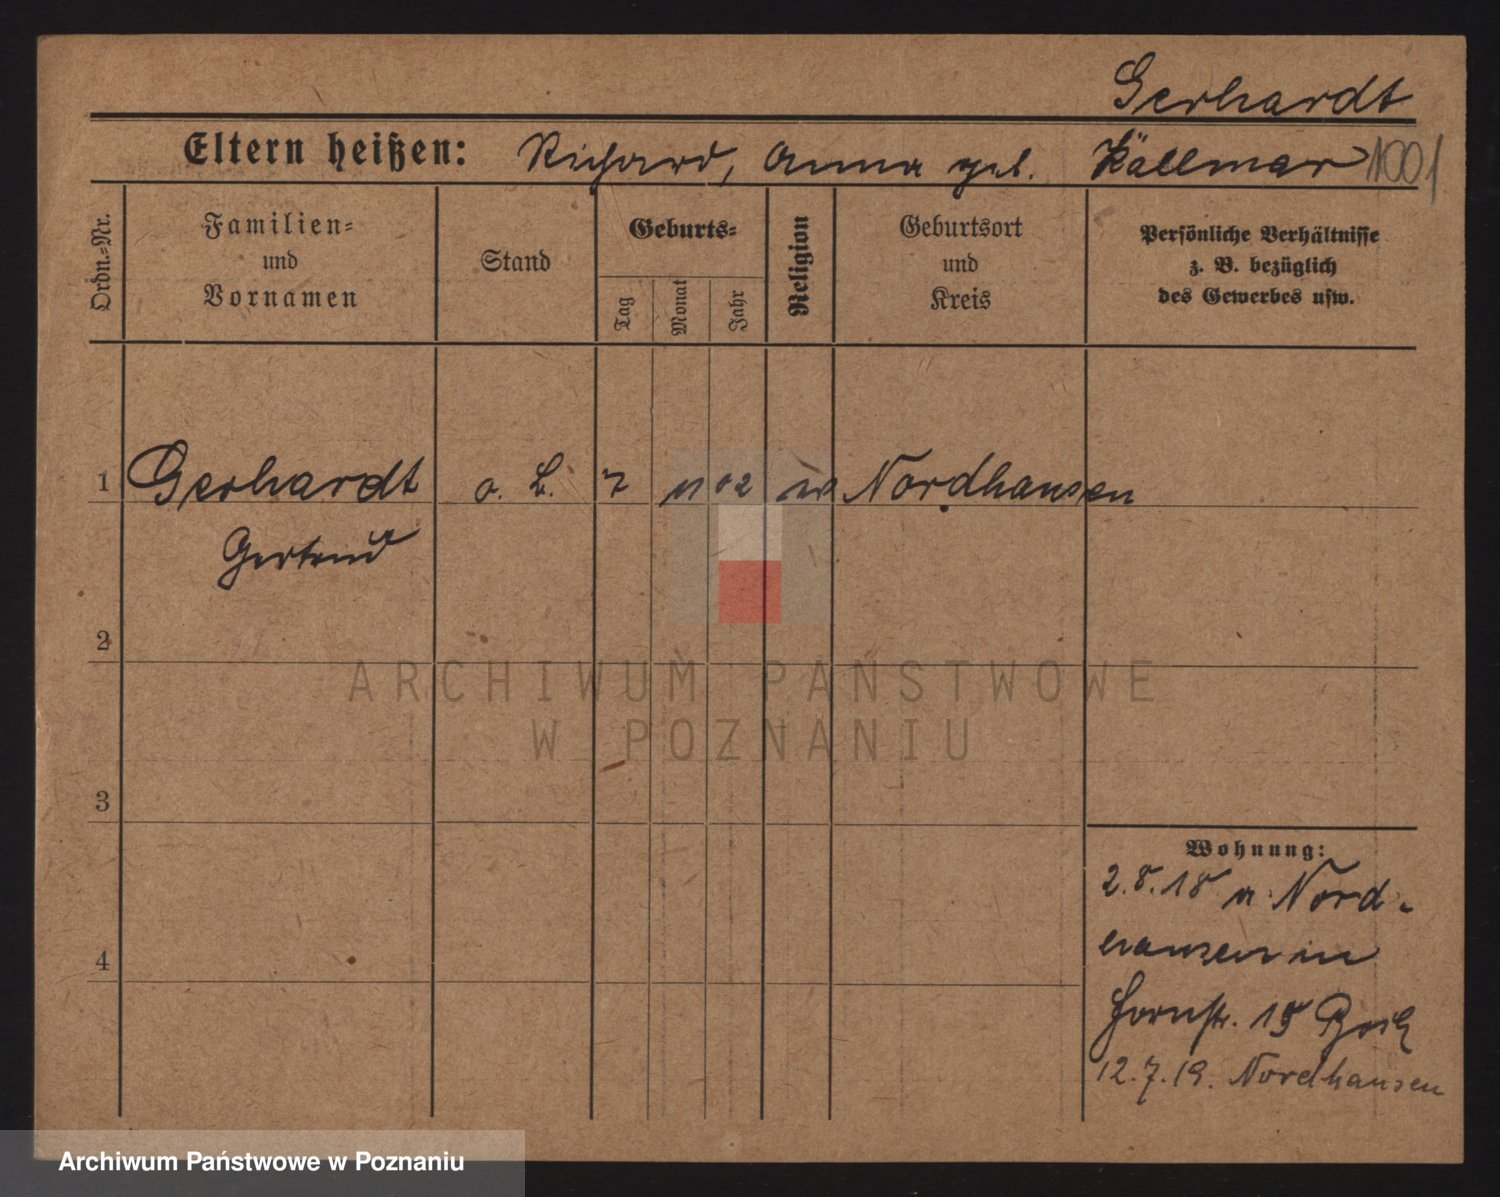 Gerhardt
Eltern heißen: Richard, Anna geb. Källmer 1001
Ordn.-Nr.
Familien-
und
Vornamen
Stand
Geburts-
Tag
Monat
Jahr
Religion
Geburtsort
und
Kreis
Persönliche Verhältnisse
z. B. bezüglich
des Gewerbes usw.
1 Gerhardt o. B. 7 11 02 ev Nordhausen
Gertrud
2
3
4
Wohnung:
2.8.18 n. Nord-
hausen in
Hornstr. 15
12.7.19. Nordhausen
ARCHIWUM PAŃSTWOWE
W POZNANIU
Archiwum Państwowe w Poznaniu